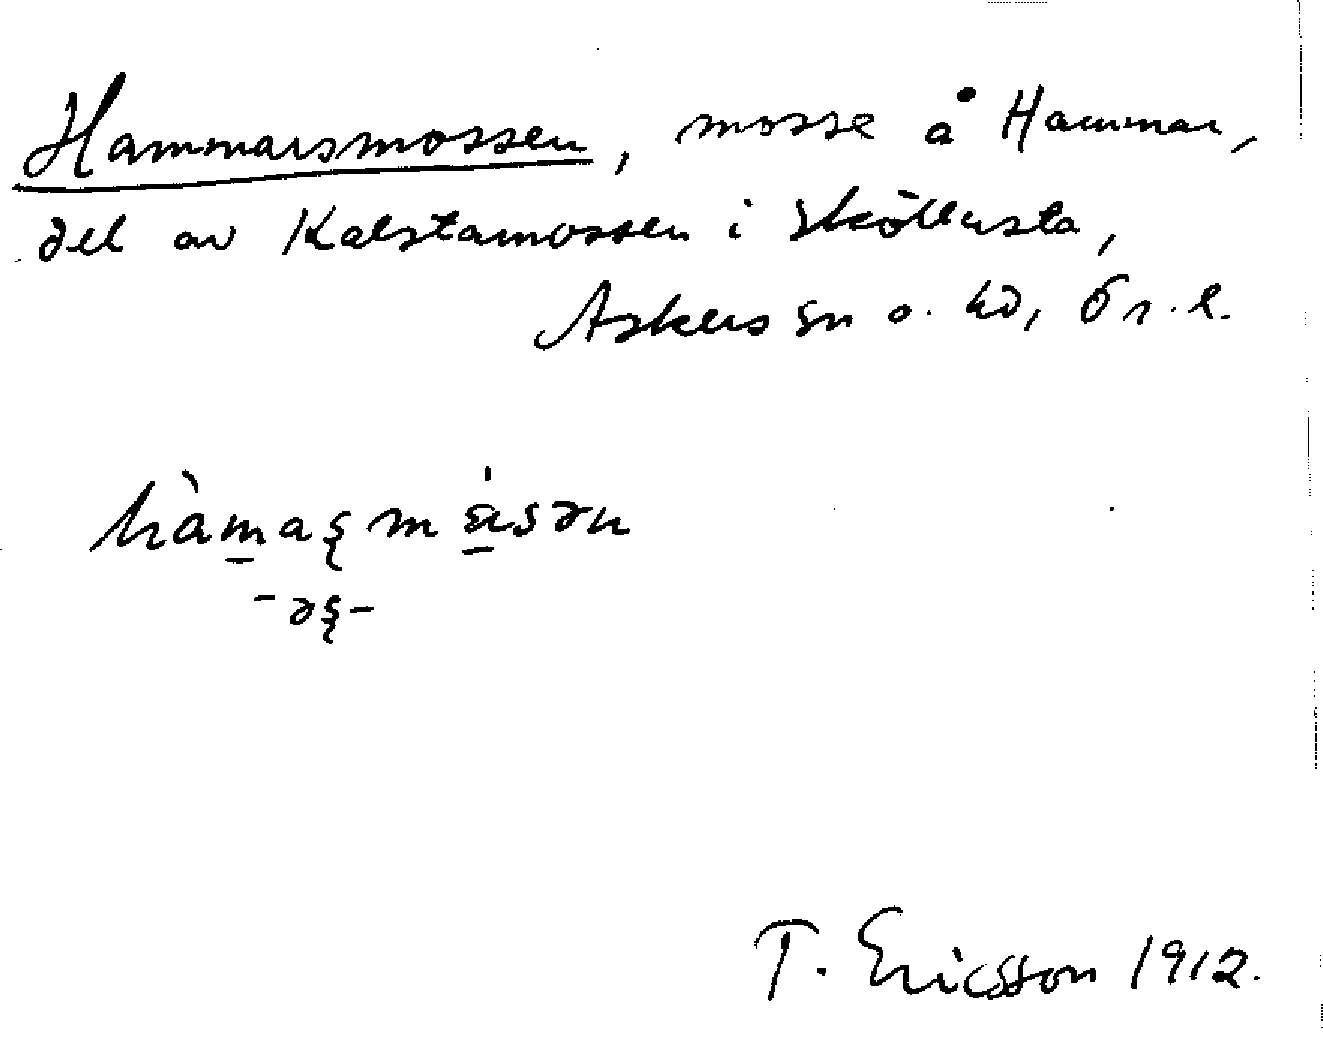 Hammarsmossen, mosse å Hammar,
del av Kalstamossen i Sköllersta,
Askers sn o. hd, Ör. l.
T. Ericsson 1912.